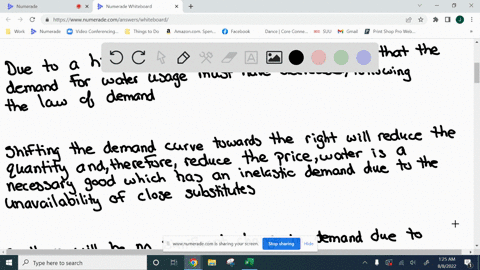 Numerade
Numerade Whiteboard
https://www.numerade.com/answers/whiteboard/
Work
Numerade
Video Conversions
Things to Do
Amazon.com. Spen
Facebook
Dance ( Core Concep
SUU
Gmail
Print Shop Pro Web
Due to a h that the
demand for water usage must have following
the law of demand
Shifting the demand curve towards the right will reduce the
quantity and, therefore, reduce the price, water is a
necessary good which has an inelastic demand due to the
unavailability of close substitutes
www.numerade.com is sharing your screen.
Stop sharing
Hide
will be no demand due to
Type here to search
1:25 AM
9/8/2022